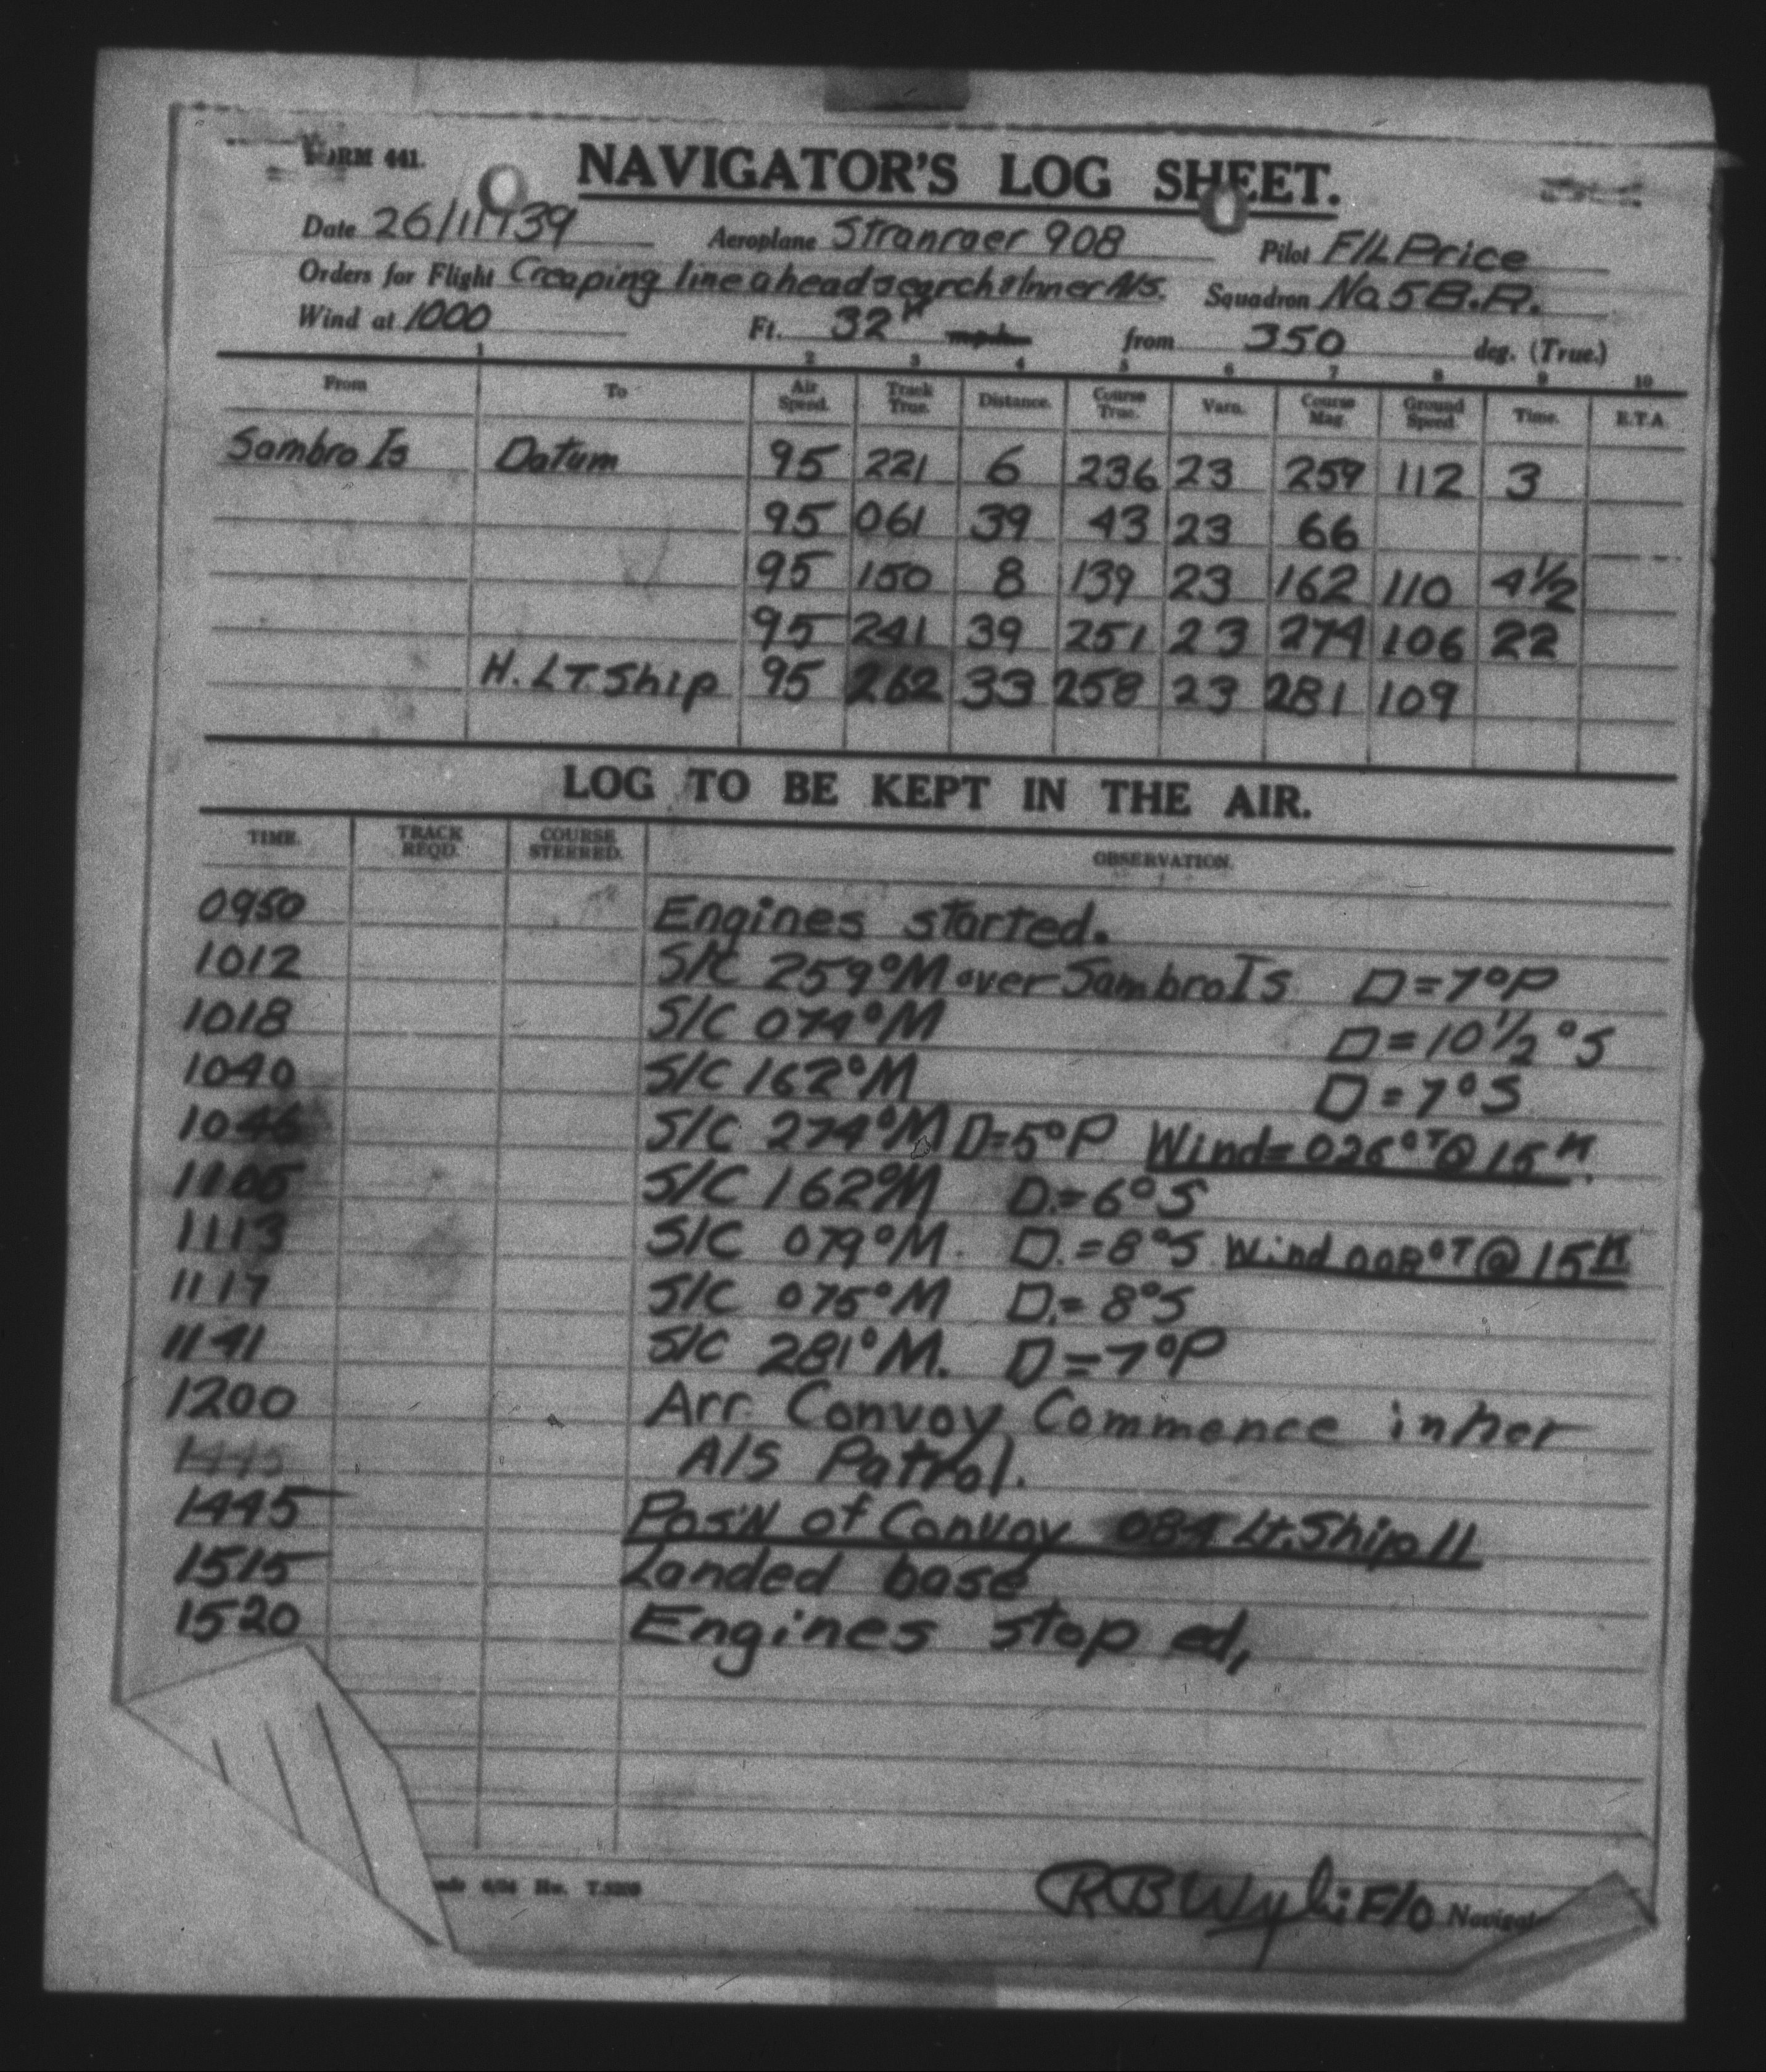 FORM 441.
NAVIGATOR'S LOG SHEET.
Date 26/11/39 Aeroplane Stranraer 908 Pilot F/L Price
Orders for Flight Creaping line ahead search & Inner A/S. Squadron No 5 B.R.
Wind at 1000 Ft. 32 K mph from 350 deg. (True.)
1 2 3 4 5 6 7 8 9 10
From To Air Speed. Track True. Distance. Course True. Varn. Course Mag. Ground Speed. Time. E.T.A.
Sambro Is Datum 95 221 6 236 23 259 112 3
95 061 39 43 23 66
95 150 8 139 23 162 110 4½
95 241 39 251 23 274 106 22
H. LT. Ship 95 262 33 258 23 281 109
LOG TO BE KEPT IN THE AIR.
TIME. TRACK REQD. COURSE STEERED. OBSERVATION.
0950 Engines started.
1012 S/C 259°M over Sambro Is D=7°P
1018 S/C 074°M D=10½°S
1040 S/C 162°M D=7°S
1046 S/C 274°M D=5°P Wind=026°T@15K.
1105 S/C 162°M D.=6°S
1113 S/C 079°M. D.=8°S Wind 008°T@15K
1117 S/C 075°M D.=8°S
1141 S/C 281°M. D=7°P
1200 Arr. Convoy Commence inner
1445 A/S Patrol.
1445 Pos'n of Convoy 084 Lt. Ship 11
1515 Landed base
1520 Engines stop ed,
RB Wyli F/O